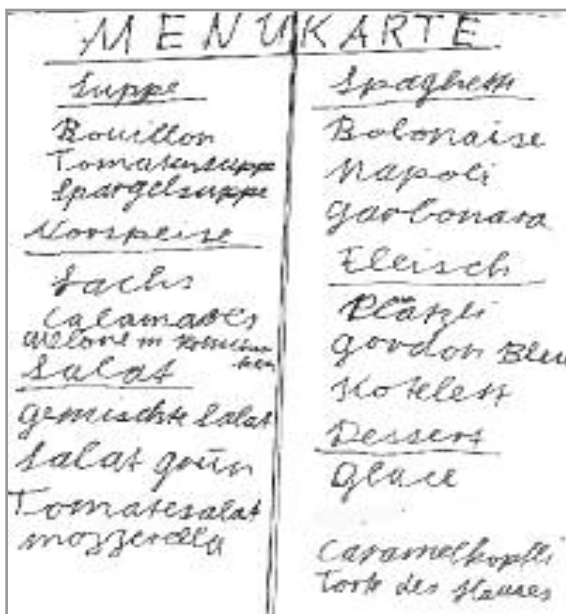 MENUKARTE
Suppe
Bouillon
Tomatensuppe
Spargelsuppe
Vorspeise
Lachs
Calamares
Melone m
Salat
gemischte Salat
Salat grün
Tomatesalat
mozzerella
Spaghetti
Bolonaise
Napoli
Garbonara
Fleisch
Plätzli
gordon Bleu
Kotelett
Dessert
Glace
Caramelköpfli
Torte des Hauses